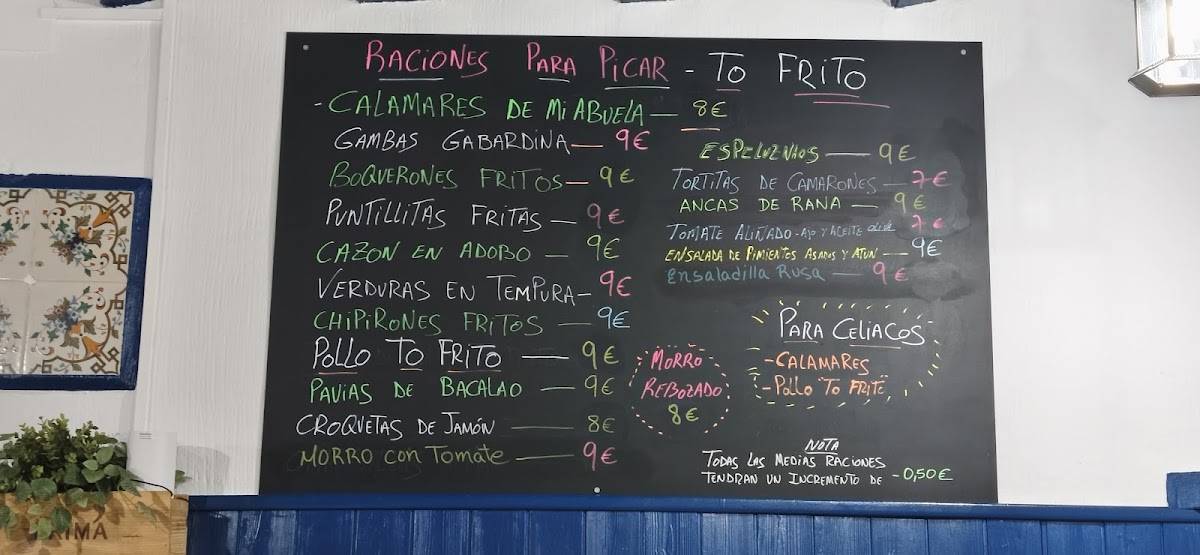 RACIONES PARA PICAR - TO FRITO
- CALAMARES DE MI ABUELA — 8€
GAMBAS GABARDINA — 9€
BOQUERONES FRITOS — 9€
PUNTILLITAS FRITAS — 9€
CAZON EN ADOBO — 9€
VERDURAS EN TEMPURA — 9€
CHIPIRONES FRITOS — 9€
POLLO TO FRITO — 9€
PAVIAS DE BACALAO — 9€
CROQUETAS DE JAMÓN — 8€
MORRO con Tomate — 9€
ESPELUZNAOS — 9€
TORTITAS DE CAMARONES — 7€
ANCAS DE RANA — 9€
TOMATE ALIÑADO - AJO Y ACEITE 7€
ENSALADA DE PIMIENTOS ASADOS Y ATUN — 9€
Ensaladilla Rusa — 9€
MORRO
REBOZADO
8€
PARA CELIACOS
- CALAMARES
- POLLO TO FRITE
NOTA
TODAS LAS MEDIAS RACIONES
TENDRAN UN INCREMENTO DE - 0,50€